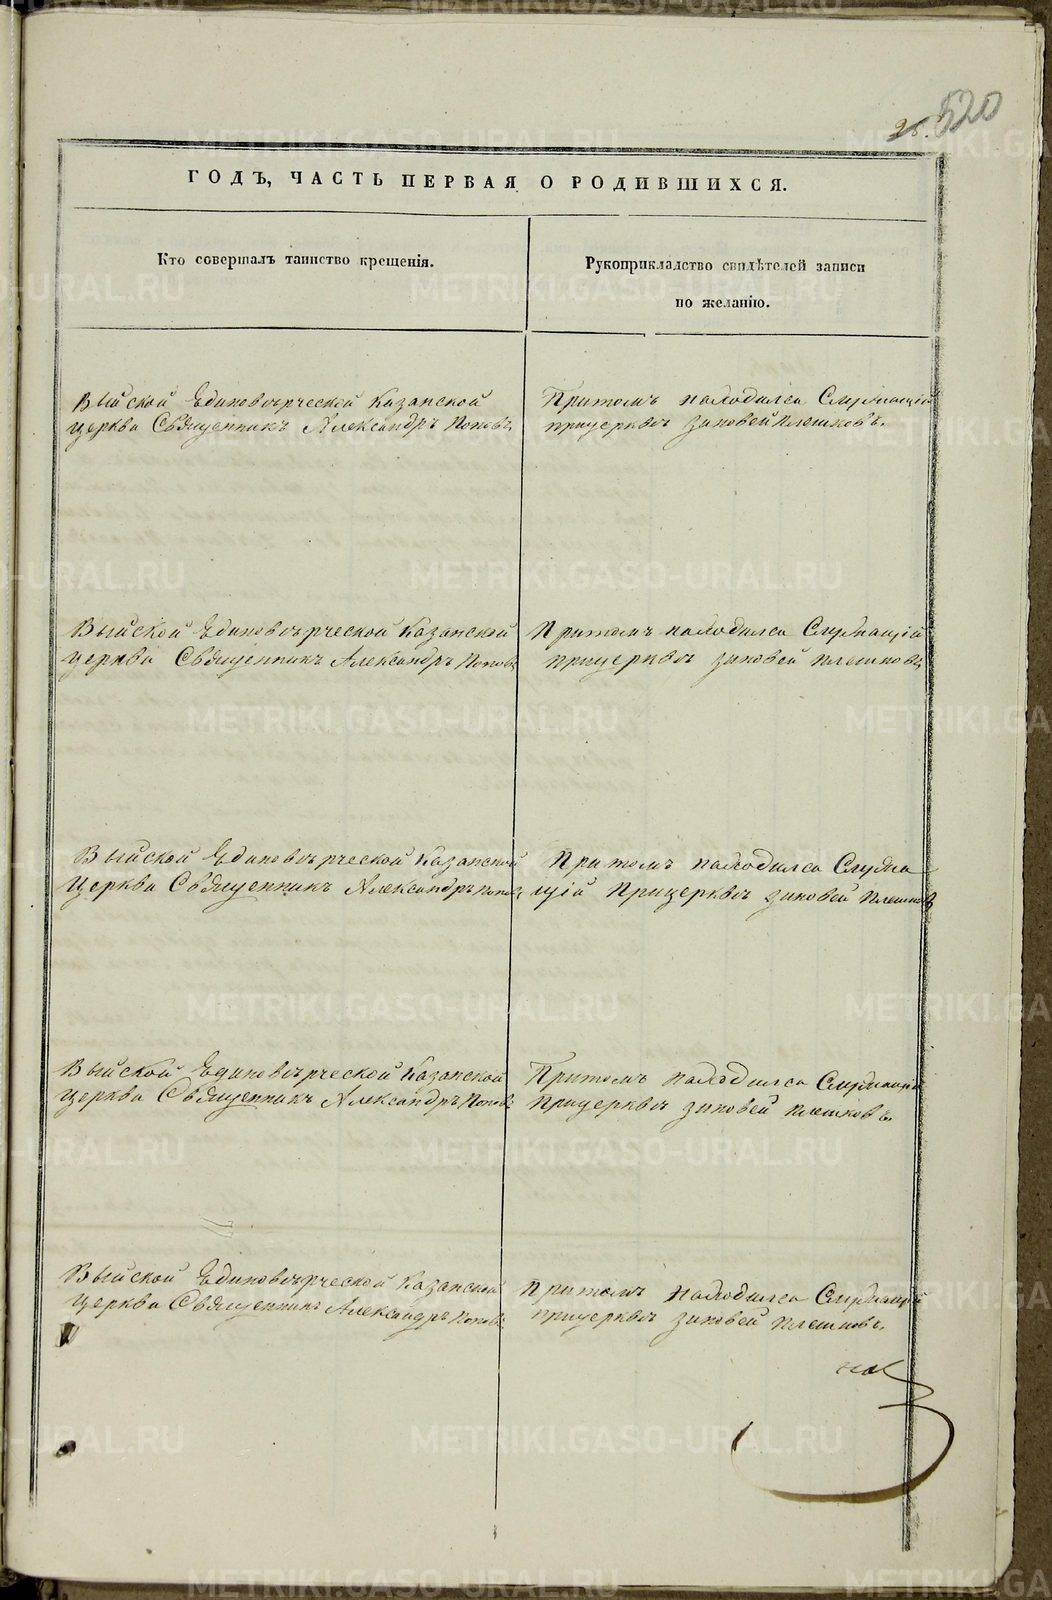 520
ГОДЪ, ЧАСТЬ ПЕРВАЯ О РОДИВШИХСЯ.
Кто совершалъ таинство крещенія.
Рукоприкладство свидѣтелей записи
по желанію.
Выйской Единовѣрческой Казанской
церкви Священникъ Александръ Поповъ
Притомъ находился Служащій
прицерквѣ Зиновей Плешковъ.
Выйской Единовѣрческой Казанской
церкви Священникъ Александръ Поповъ
Притомъ находился Служащій
прицерквѣ Зиновей Плешковъ
Выйской Единовѣрческой Казанской
церкви Священникъ Александръ Поповъ
Притомъ находился Служа
щій Прицерквѣ Зиновей Плешковъ
Выйской Единовѣрческой Казанской
церкви Священникъ Александръ Поповъ
Притомъ находился Служащій
Прицерквѣ Зиновей Плешковъ.
Выйской Единовѣрческой Казанской
церкви Священникъ Александръ Поповъ
Притомъ находился Служащій
прицерквѣ Зиновей Плешковъ.
METRIKI.GASO-URAL.RU